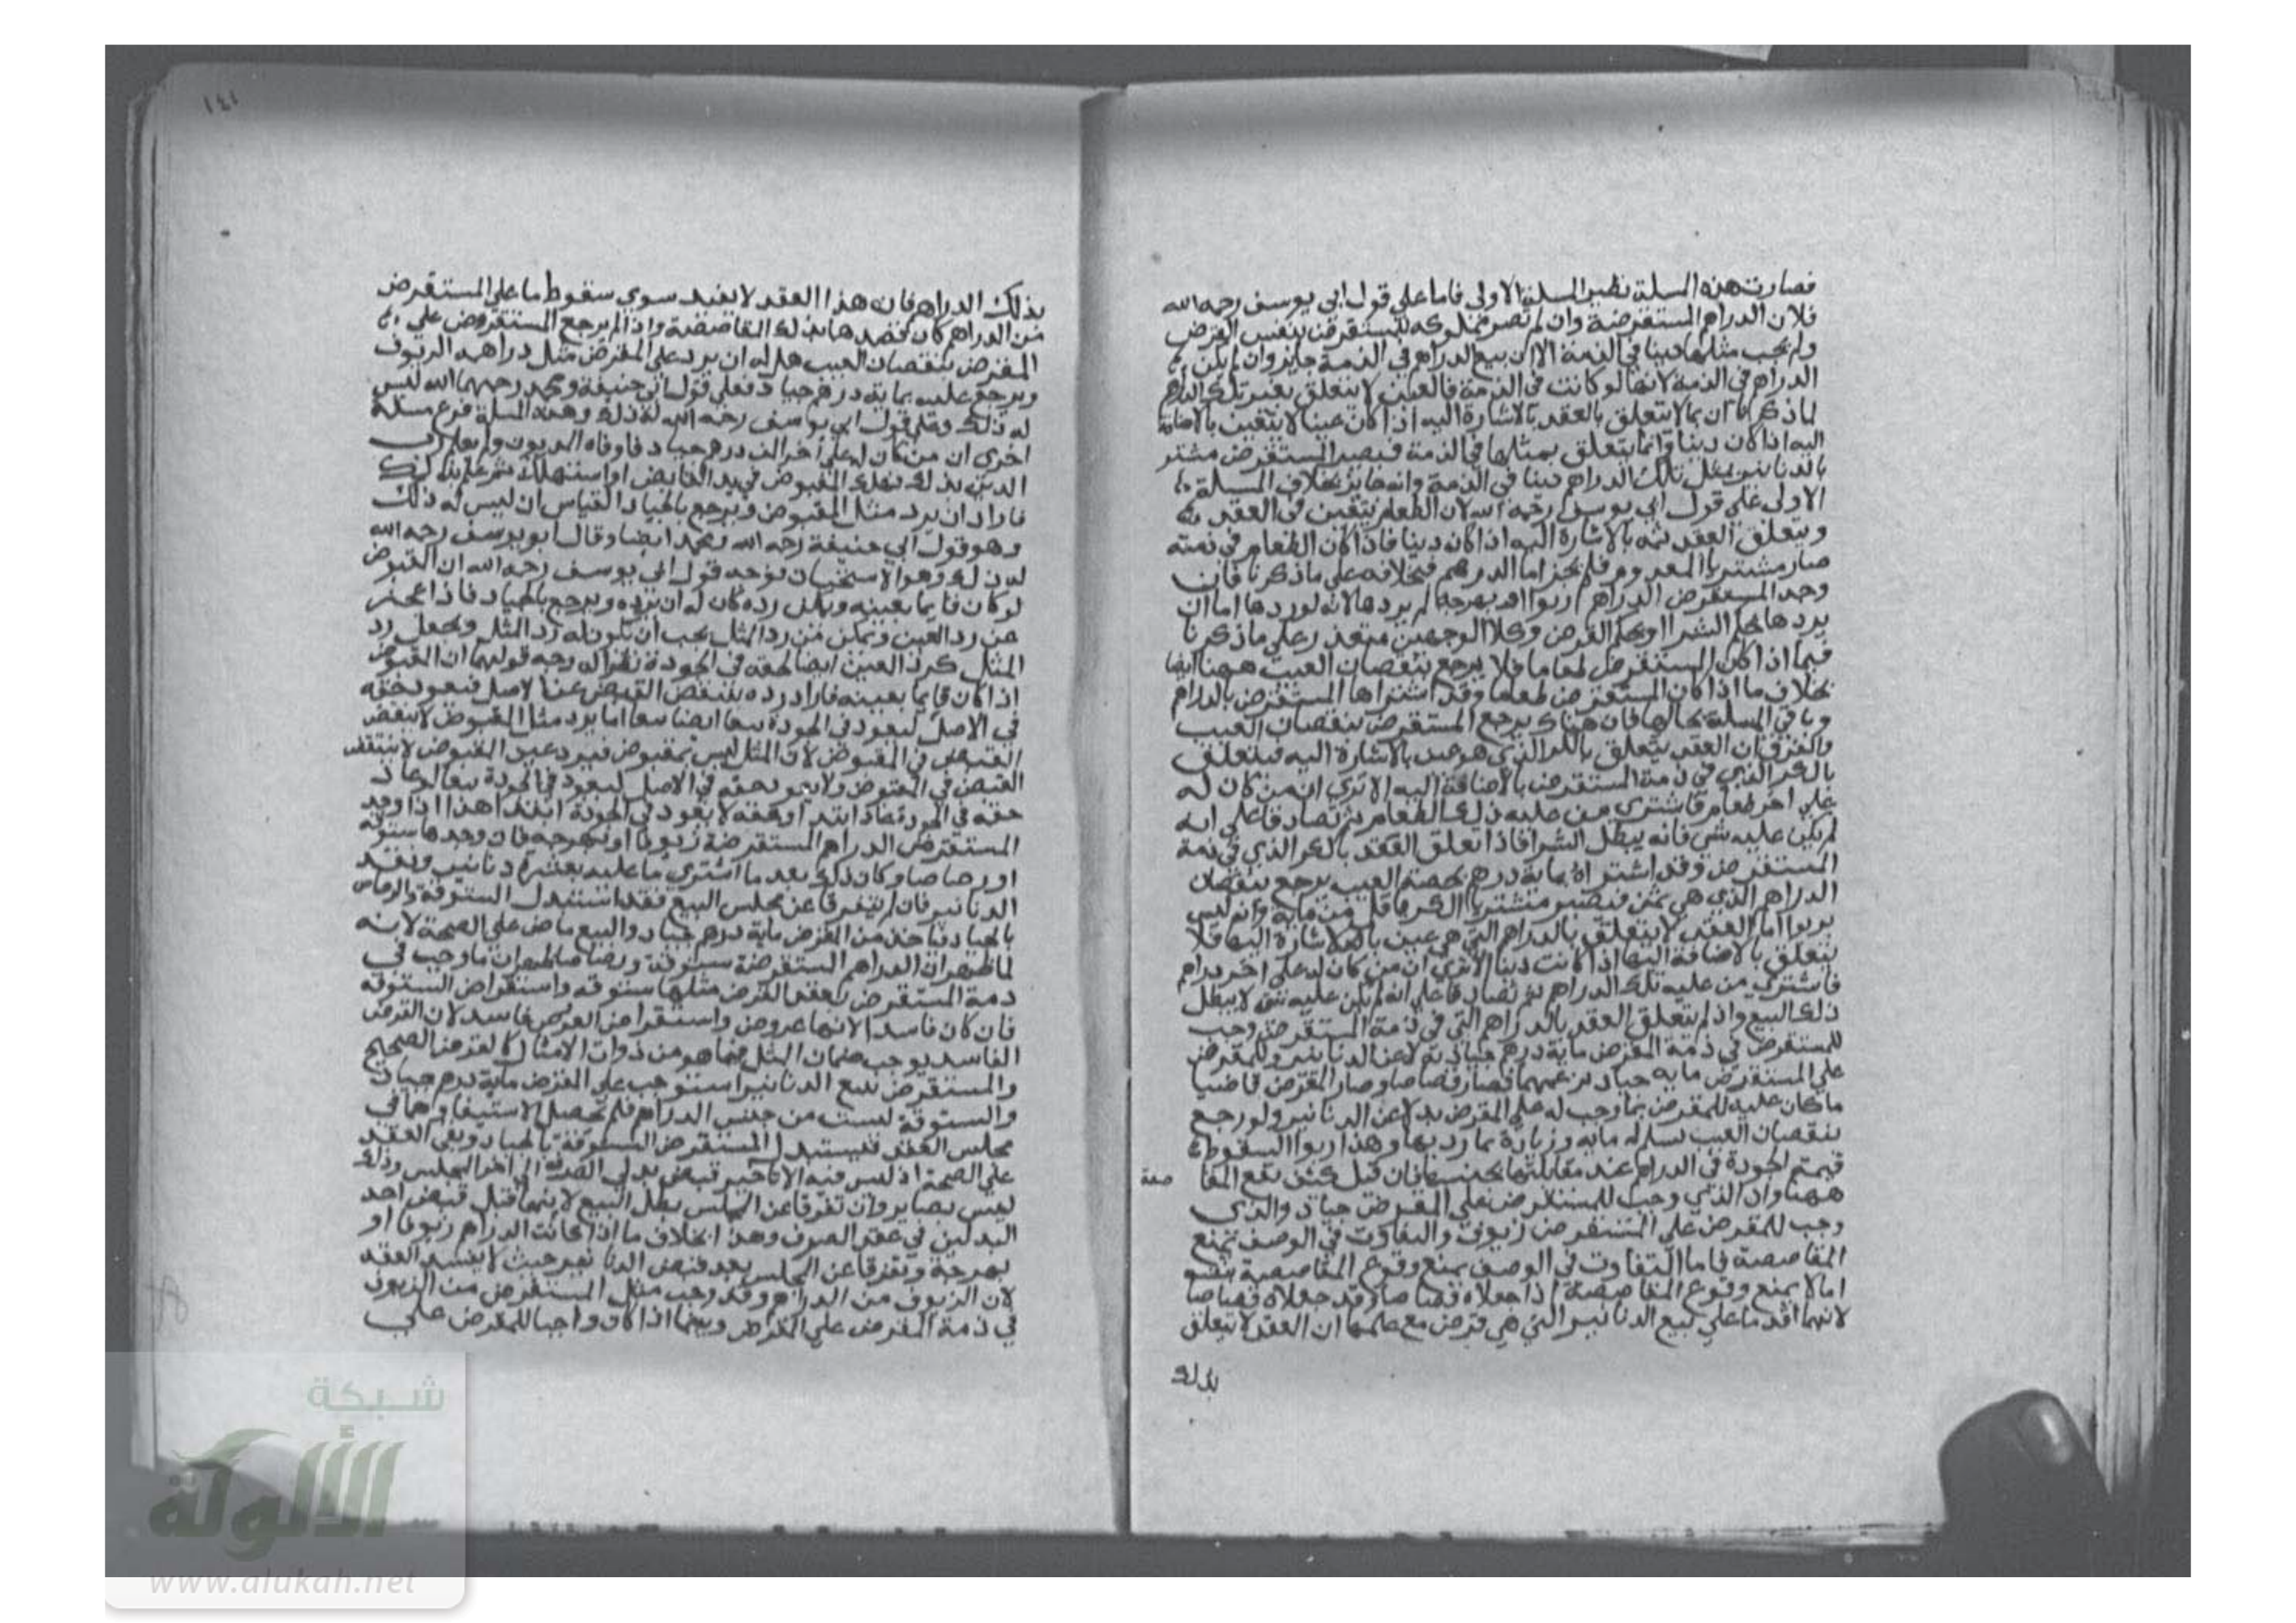 فصارت هذه المسلة نظير المسلة الاولى فاما علي قول ابي يوسف رحمه الله
فلان الدراهم المستقرضة وان لم تصر مملوكه للمستقرض بنفس القرض
ولم يجب مثلها دينا في الذمة الا ان بيع الدراهم في الذمة جايز وان لم تكن
الدراهم في الذمة لانها لو كانت في الذمة فالعقد لا يتعلق بعين تلك الدراهم
لما ذكرنا ان ما لا يتعلق بالعقد بالاشارة اليه اذا كان عينا لا يتعين بالاضافة
اليه اذا كان دينا وانما يتعلق بمثلها في الذمة فيصير المستقرض مشتر
بالدنانير مثل تلك الدراهم دينا في الذمة وانه جايز بخلاف المسلة
الاولى علي قول ابي يوسف رحمه الله لان الطعام يتعين في العقد
ويتعلق العقد ثمه بالاشارة اليه اذا كان دينا فاذا كان الطعام في ذمته
صار مشتريا المعدوم فلم يجز اما الدرهم فبخلافه علي ما ذكرنا فان
وجد المستقرض الدراهم زيوفا او بهرجه لم يردها لانه لو ردها اما ان
يردها بحكم الشرا او بحكم القرض وكلا الوجهين متعذر علي ما ذكرنا
فيما اذا كان المستقرض طعاما فلا يرجع بنقصان العيب ههنا ايضا
بخلاف ما اذا كان المستقرض طعاما وقد اشتراها المستقرض بالدراهم
وباقي المسلة بحالها فان هناك يرجع المستقرض بنقصان العيب
والفرق ان العقد يتعلق بالكر الذي هو عين بالاشارة اليه فيتعلق
بالكر الذي في ذمة المستقرض بالاضافة اليه الا تري ان من كان له
علي اخر طعام فاشتري من عليه ذلك الطعام ثم تصادقا علي انه
لم يكن عليه شي فانه يبطل الشرا فاذا تعلق العقد بالكر الذي في ذمة
المستقرض وقد اشتراه بماية درهم بحصة العيب يرجع بنقصان
الدراهم الذي هي ثمن فيصير مشتريا الكر باقل من ماية وانه ليس
بربوا اما العقد لا يتعلق بالدراهم التي هي عين بالاشارة اليها فلا
يتعلق بالاضافة اليها اذا كانت دينا الا تري ان من كان له علي اخر دراهم
فاشتري من عليه تلك الدراهم ثم تصادقا علي انه لم يكن عليه شي لا يبطل
ذلك البيع واذا لم يتعلق العقد بالدراهم التي في ذمة المستقرض وجب
للمستقرض في ذمة المقرض ماية درهم جياد بدلا عن الدنانير وللمقرض
علي المستقرض مايه جياد بزعمهما فصار قصاصا وصار المقرض قاضيا
ما كان عليه للمقرض بما وجب له علي المقرض بدلا عن الدنانير ولو رجع
بنقصان العيب سلم له مايه وزيادة بما رد بها وهذا ربوا لسقوط
قيمة الجودة في الدراهم عند مقابلتها بجنسها فان قيل كيف تقع المقا
صة
ههنا وان الذي وجب للمستقرض علي المقرض جياد والذي
وجب للمقرض علي المستقرض زيوف والتفاوت في الوصف يمنع
المقاصصة فاما التفاوت في الوصف يمنع وقوع المقاصصة بنفسه
اما لا يمنع وقوع المقاصصة اذا جعلاه قصاصا وقد جعلاه قصاصا
لانهما اقدما علي بيع الدنانير التي هي قرض مع علمهما ان العقد لا يتعلق
بذلك
١٤١
بذلك الدراهم فان هذا العقد لا يفيد سوي سقوط ما علي المستقرض
من الدراهم كان قصدهما بذلك المقاصصة واذا لم يرجع المستقرض علي
المقرض بنقصان العيب هل له ان يرد علي المقرض مثل دراهمه الزيوف
ويرجع عليه بماية درهم جياد فعلي قول ابي حنيفة ومحمد رحمهما الله ليس
له ذلك وعلي قول ابي يوسف رحمه الله له ذلك وهذه المسلة فرع مسلة
اخري ان من كان له علي اخر الف درهم جياد فاوفاه المديون ولم يعلم رب
الدين بذلك فهلك المقبوض في يد القابض او استهلك ثم علم بذلك
فاراد ان يرد مثل المقبوض ويرجع بالجياد القياس ان ليس له ذلك
وهو قول ابي حنيفة رحمه الله ومحمد ايضا وقال ابو يوسف رحمه الله
له ذلك وهو الاستحسان بوجه قول ابي يوسف رحمه الله ان المقبوض
لو كان قايما بعينه ويمكن رده كان له ان يرده ويرجع بالجياد فاذا عجز
عن رد العين ويمكن من رد المثل يجب ان يكون له رد المثل ويجعل رد
المثل كرد العين ايضا لحقه في الجودة نظرا له وجه قولهما ان المقبوض
اذا كان قايما بعينه فاراد رده ينتقض القبض عن الاصل فيعود حقه
في الاصل ليعود في الجودة تبعا ايضا بيعا اما برد مثل المقبوض لا ينتقض
القبض في المقبوض لان المثل ليس بمقبوض فبرد عين المقبوض لا ينتقض
القبض في المقبوض ولا يعود حقه في الاصل ليعود في الجودة تبعا لو عاد
حقه في الجودة عاد ابتدا وحقه لا يعود في الجودة ابتدا هذا اذا وجد
المستقرض الدراهم المستقرضة زيوفا او بهرجه فان وجدها ستوقه
او رصاصا وكان ذلك بعد ما اشتري ما عليه بعشرة دنانير ونقد
الدنانير فان لم يتفرقا عن مجلس البيع فقد استبدل الستوقة والرصاص
بالجياد فياخذ من المقرض ماية درهم جياد والبيع ماض علي الصحة لانه
لما ظهر ان الدراهم المستقرضة ستوقة ورصاصا ظهر ان ما وجب في
ذمة المستقرض بعقد القرض مثلها ستوقه واستقراض الستوقه
فان كان فاسدا لانها عروض واستقراض العروض فاسد لان القرض
الفاسد يوجب ضمان المثل فيما هو من ذوات الامثال كالقرض الصحيح
والمستقرض ببيع الدنانير استوجب علي المقرض ماية درهم جياد
والستوقة ليست من جنس الدراهم فلم يحصل الاستيفا وهما في
مجلس العقد فيستبدل المستقرض الستوقة بالجياد وبقي العقد
علي الصحة اذ ليس فيه الا تاخير قبض بدلي الصرف الي اخر المجلس وذلك
ليس بضاير وان تفرقا عن المجلس بطل البيع لانهما قبل قبض احد
البدلين في عقد الصرف وهذا بخلاف ما اذا كانت الدراهم زيوفا او
بهرجة وتفرقا عن المجلس بعد قبض الدنانير حيث لا يفسد العقد
لان الزيوف من الدراهم وقد وجب مثل المستقرض من الزيوف
في ذمة المقرض علي المقرض وبينما اذا كان واجبا للمقرض علي
شبكة
الألوكة
www.alukah.net